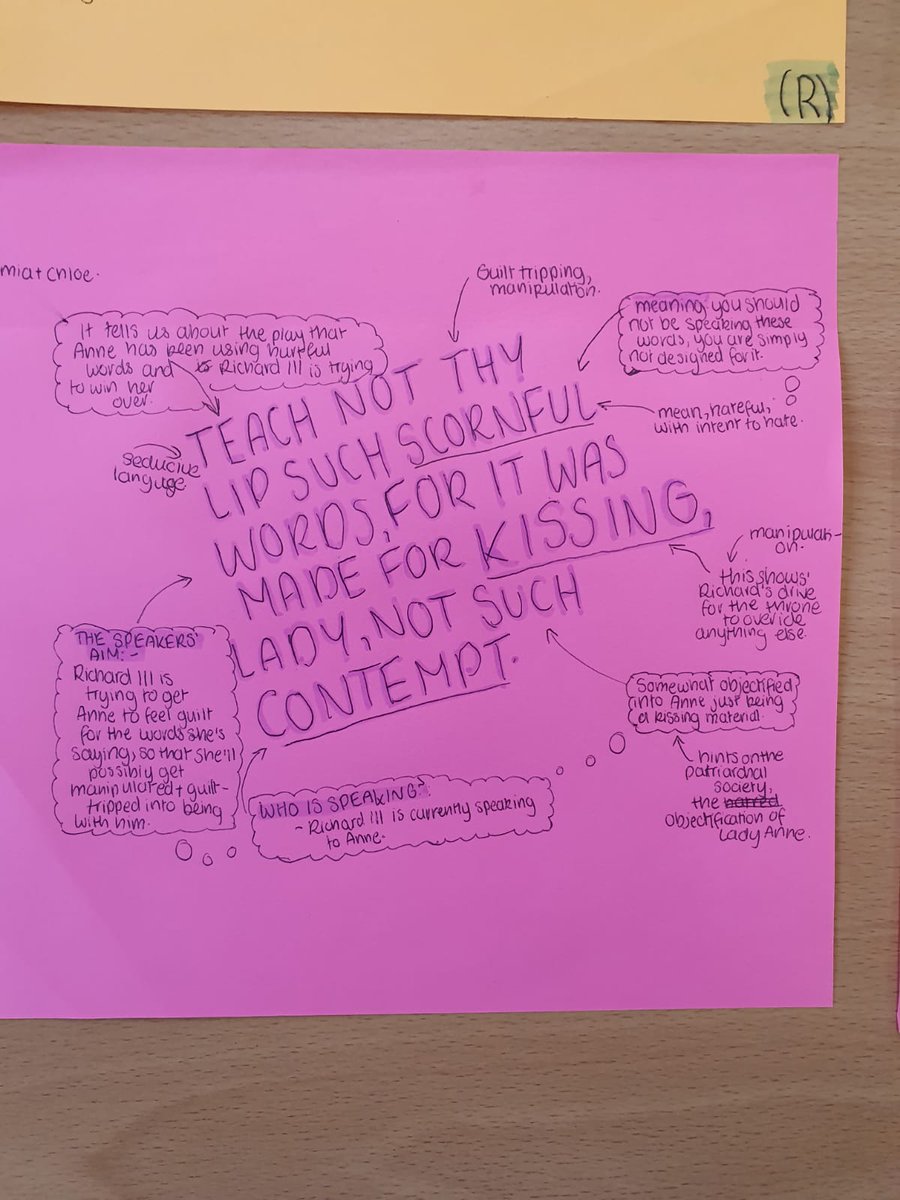 (R)
mia+ chloe.
Guilt tripping,
manipulation.
It tells us about the play that
Anne has been using hurtful
words and Richard III is trying
to win her
over.
meaning you should
not be speaking these
words, you are simply
not designed for it.
mean, hateful,
with intent to hate.
seducive
languge
TEACH NOT THY
LIP SUCH SCORNFUL
WORDS, FOR IT WAS
MADE FOR KISSING,
LADY, NOT SUCH
CONTEMPT.
manipulati-
on.
this shows
Richard's drive
for the throne
to overide
anything else.
THE SPEAKERS'
AIM:-
Richard III is
trying to get
Anne to feel guilt
for the words she's
saying, so that she'll
possibly get
manipulated + guilt-
tripped into being
with him.
Somewhat objectified
into Anne just being
a kissing material.
hints on the
patriarchal
society,
the hatred
objectification of
Lady Anne.
WHO IS SPEAKING?
- Richard III is currently speaking
to Anne.